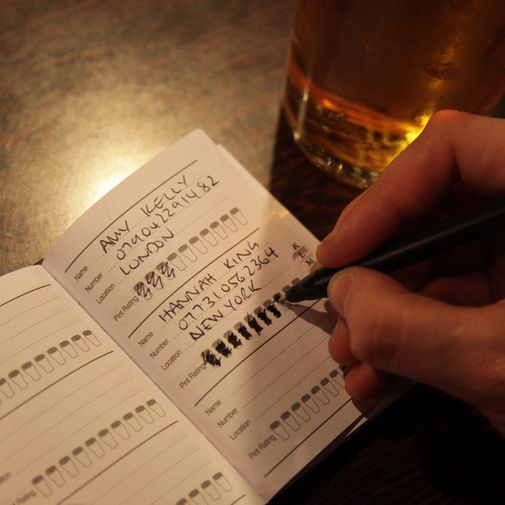 Name AMY KELLY
Number 079042291482
Location LONDON
Pint Rating
Name HANNAH KING
Number 077310562364
Location NEW YORK
Pint Rating
Name
Number
Location
Pint Rating
Pint Rating